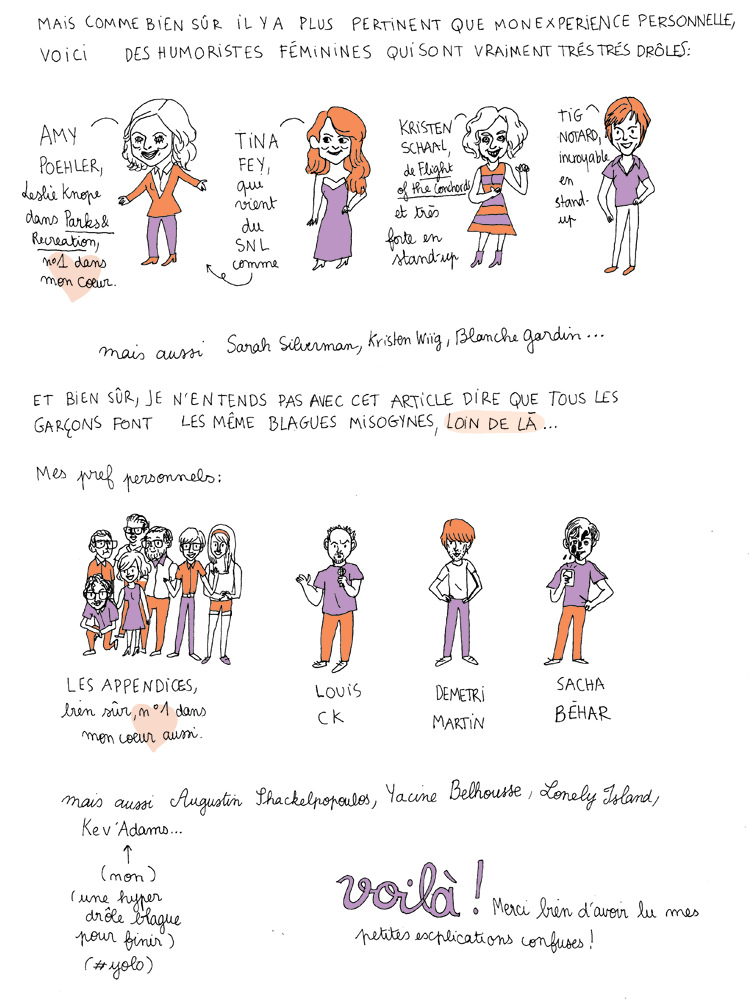 MAIS COMME BIEN SÛR IL Y A PLUS PERTINENT QUE MON EXPERIENCE PERSONNELLE,
VOICI DES HUMORISTES FÉMININES QUI SONT VRAIMENT TRÉS TRÉS DRÔLES:
AMY
POEHLER,
Leslie Knope
dans Parks &
Recreation,
n°1 dans
mon cœur.
TINA
FEY,
qui
vient
du
SNL
comme
KRISTEN
SCHAAL,
de Flight
of the Conchords
et très
forte en
stand-up
TIG
NOTARO,
incroyable
en
stand-
up
mais aussi Sarah Silverman, Kristen Wiig, Blanche Gardin...
ET BIEN SÛR, JE N'ENTENDS PAS AVEC CET ARTICLE DIRE QUE TOUS LES
GARÇONS FONT LES MÊME BLAGUES MISOGYNES, LOIN DE LÀ...
Mes pref personnels:
LES APPENDICES,
bien sûr, n°1 dans
mon cœur aussi.
LOUIS
CK
DEMETRI
MARTIN
SACHA
BÉHAR
mais aussi Augustin Shackelpopoulos, Yacine Belhousse, Lonely Island,
Kev'Adams...
(non)
(une hyper
drôle blague
pour finir)
(#yolo)
voilà! Merci bien d'avoir lu mes
petites explications confuses!